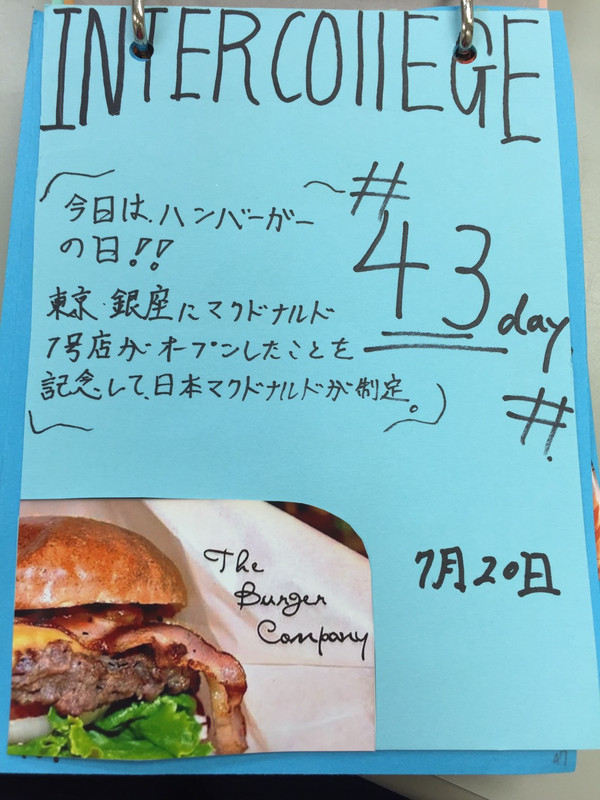 INTERCOllEGE
今日は、ハンバーガー
の日!!
東京・銀座にマクドナルド
1号店がオープンしたことを
記念して、日本マクドナルドが制定。
#
43day
#
7月20日
The
Burger
Company